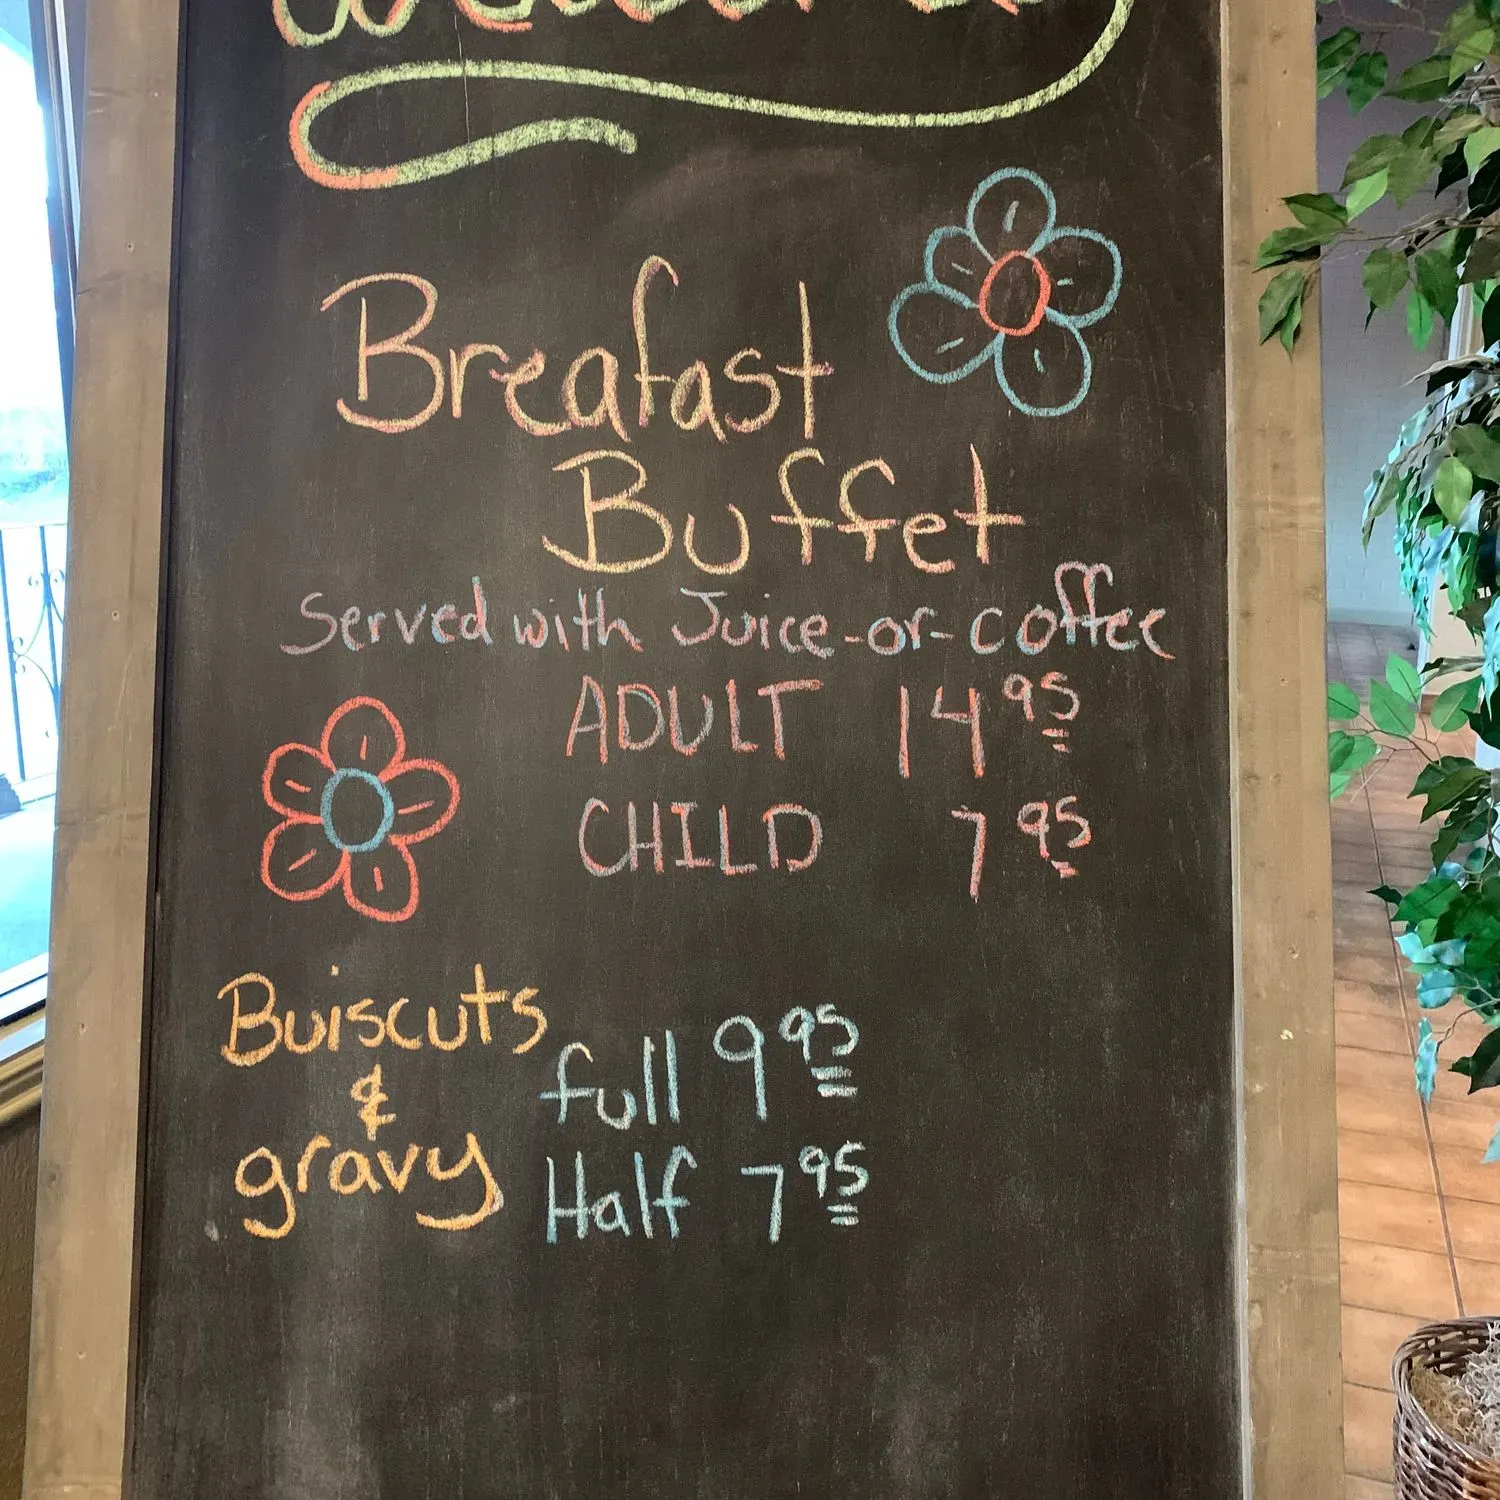 Breafast
Buffet
Served with Juice-or-coffee
ADULT 14 95
CHILD 7 95
Buiscuts
&
gravy
full 9 95
Half 7 95